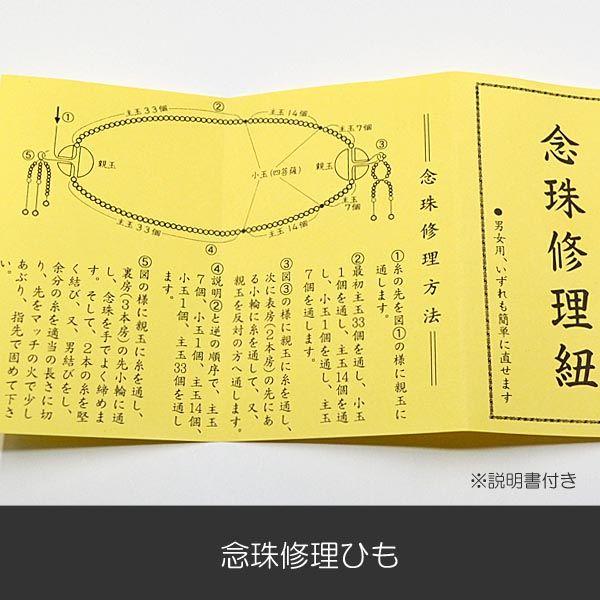 念珠修理紐
●男女用、いずれも簡単に直せます
念珠修理方法
①糸の先を図①の様に親玉に
通します。
②最初主玉33個を通し、小玉
1個を通し、主玉14個を通
し、小玉1個を通し、主玉
7個を通します。
③図③の様に親玉に糸を通し、
次に表房(2本房)の先にあ
る小輪に糸を通して、又、
親玉を反対の方へ通します。
④説明②と逆の順序で、主玉
7個、小玉1個、主玉14個、
小玉1個、主玉33個を通し
ます。
⑤図の様に親玉に糸を通し、
裏房(3本房)の先小輪に通
し、念珠を手でよく締めま
す。そして、2本の糸を堅
く結び、又、男結びをし、
余分の糸を適当の長さに切
り、先をマッチの火で少し
あぶり、指先で固めて下さ
い。
①
主玉33個
②
主玉14個
主玉7個
③
⑤
親玉
小玉(四菩薩)
親玉
主玉
7個
主玉33個
④
主玉14個
※説明書付き
念珠修理ひも